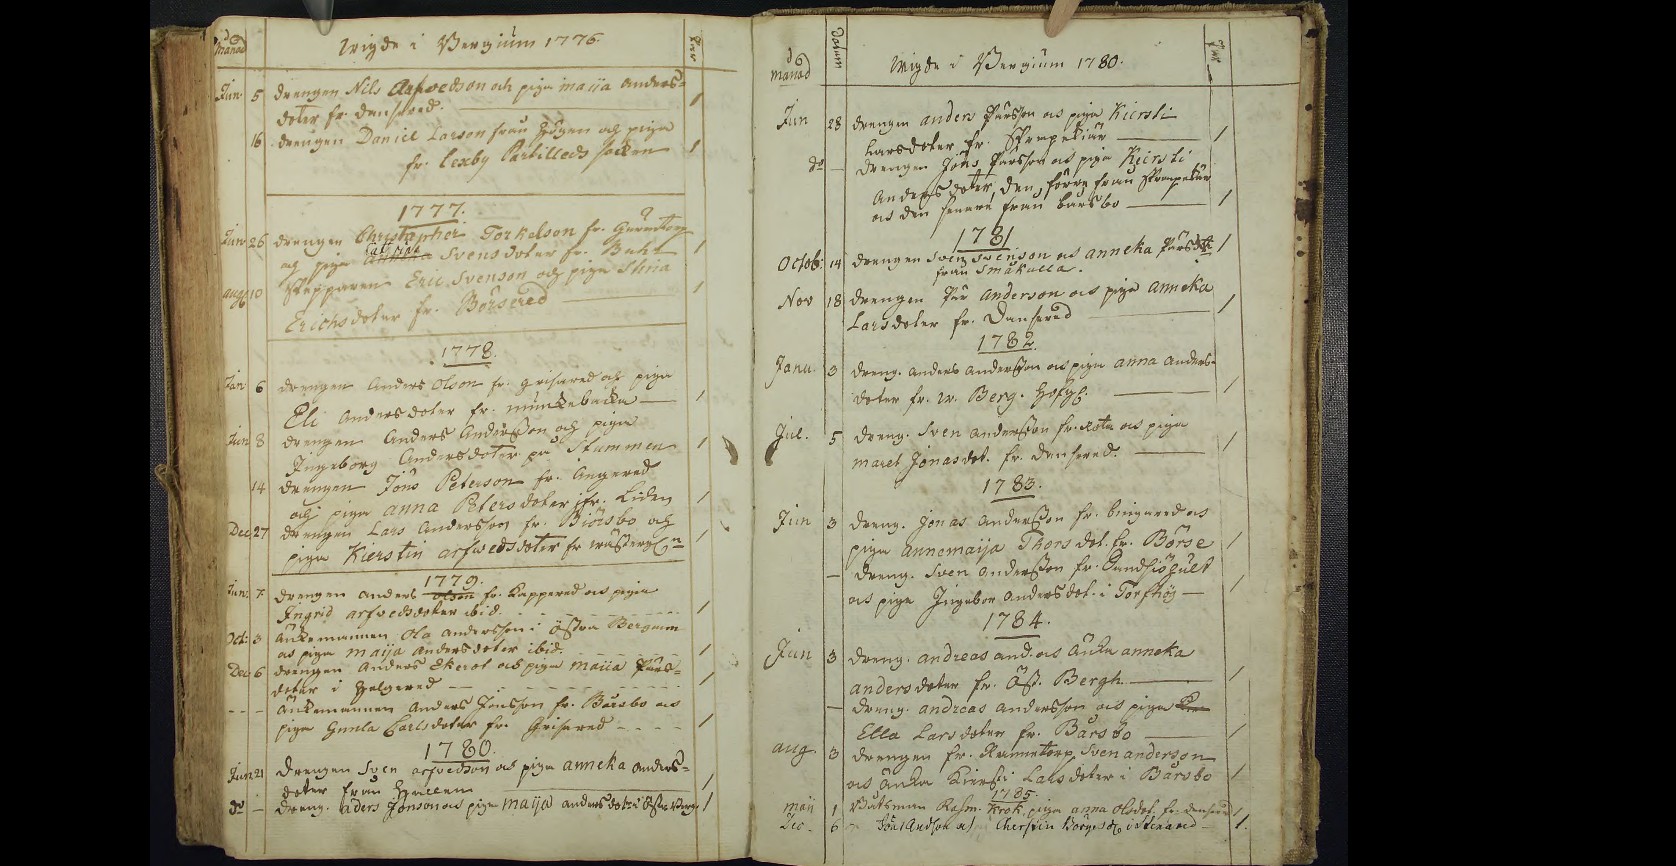 Manad
Wigde i Bergium 1776.
Par
Jun. 5 drengen Nils Arfvedson och piga maija Anders=
doter fr. Dansered. 1
16 drengen Daniel Larson från och piga
fr. Lexby Partilleds socken 1
1777.
Jun 26 drengen Christopher Torkelson fr.
och piga Cattrina Svensdoter fr. 1
aug 10 Eric Svenson och piga Stina
Erichsdoter fr. Börsered 1
1778.
Jan 6 drengen Anders Olson fr. grisared och piga
Eli Andersdoter fr. munkebäcka 1
Jun 8 drengen Anders Anderßon och piga
Ingeborg Andersdoter på Stommen 1
14 drengen Jöns Peterson fr. Angered
och piga anna Petersdoter fr. Liden 1
Dec 27 drengen Lars Andersson fr. Biörsbo och
piga Kierstin arfvedsdoter fr 1
1779.
Jun: 7 drengen anders olson fr. Kappered och piga
Ingrid arfvedsdoter ibid. 1
Oct: 3 Änkemannen Ola andersson i östra Bergum
och piga maija andersdoter ibid. 1
Dec 6 drengen anders Ekerot och piga maija Pärs=
doter i Helgered 1
Änkemannen anders Jönsson fr. Bårsbo och
piga Gunla Carlsdoter fr. Grisared 1
1780.
Jun 21 drengen Sven arfvedson och piga anneka anders=
doter från 1
do dreng. aders Jönson och piga maija andersdoter i Öster Berg. 1
manad
datum
Wigde i Bergium 1780.
Par
Jun 28 drengen anders Pärsson och piga Kiersti
Larsdoter fr. 1
do drengen Jöns Pärsson och piga Kiersti
Andersdoter, den förre från
och den senare från Barsbo 1
1781
Octob: 14 drengen Sven Svenson och anneka Pärsdott 1
från Småkulla.
Nov 18 drengen Pär anderson och piga anneka
Larsdoter fr. Dansered 1
1782.
Janu. 3 dreng. anders anderßon och piga anna anders-
doter fr. w. Berg. 1
Jul. 5 dreng. Sven anderßon fr. Rota och piga
maret Jonasdot. fr. Dansered. 1
1783.
Jun 3 dreng. jonas anderßon fr. bingared och
piga annamaija Thorsdot. fr. Börse 1
dreng. Sven anderßon fr.
och piga Ingebor andersdot. i Torfhög 1
1784.
Jun 3 dreng. andreas and. och änka anneka
andersdoter fr. Öst. Bergh 1
dreng. andreas andersson och piga
Ella Larsdoter fr. Bårsbo 1
aug 3 drengen fr. Rametorp Sven anderson
och änka Kiersti Larsdoter i Bårsbo 1
1785.
maij 1 Båtsman Rasm. Krok, piga anna Olsdot. fr. dansered 1
Dec. 6 Jöns Andson och Cherstin 1